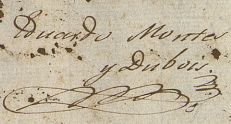 Eduardo Montes
y Dubois.